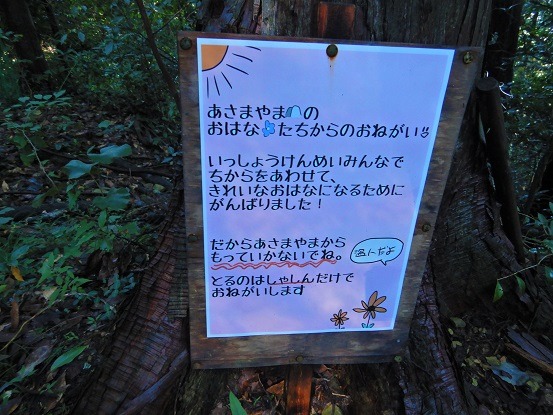 あさまやまの
おはなたちからのおねがい
いっしょうけんめいみんなで
ちからをあわせて、
きれいなおはなになるために
がんばりました！
だからあさまやまから
もっていかないでね。
盗人だよ
とるのはしゃしんだけで
おねがいします